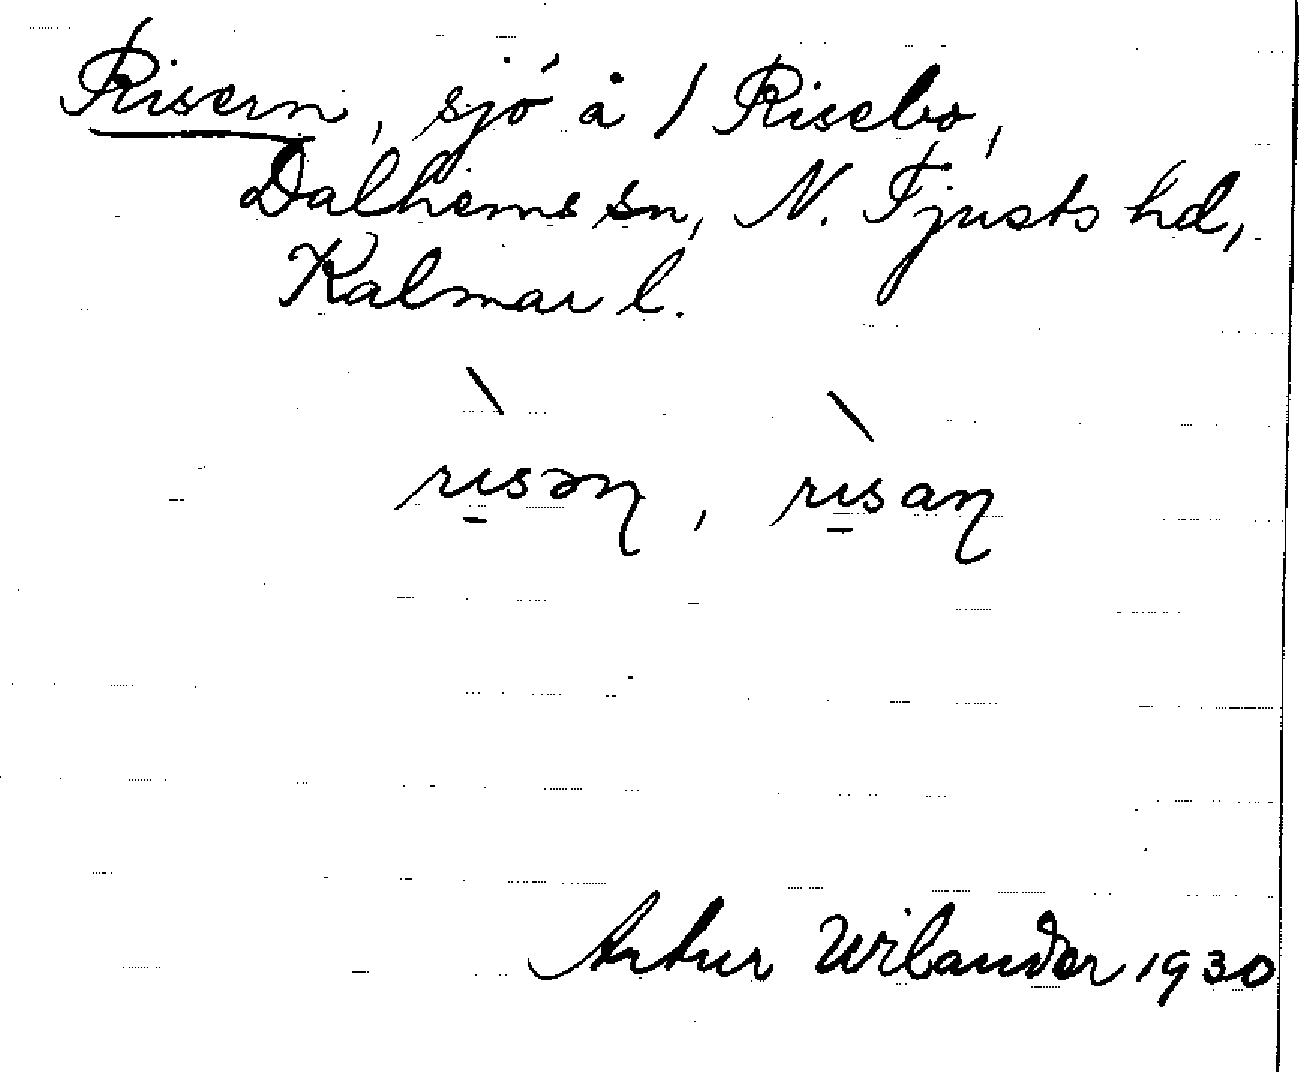 Risern, sjö å / Risebo,
Dalhems sn, N. Tjusts hd,
Kalmar l.
rɩ̠̀səɳ, rɩ̠̀saɳ
Artur Wilander 1930